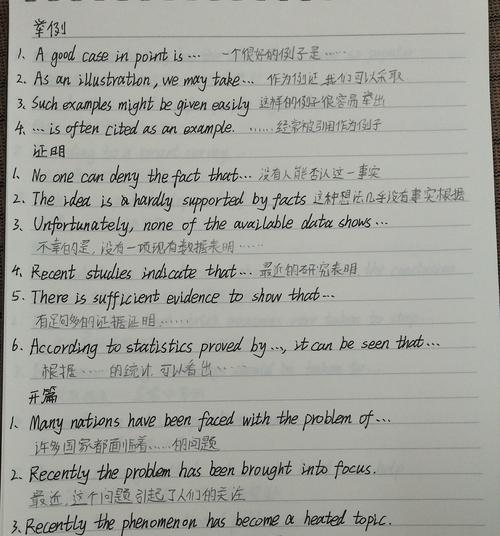 举例
1. A good case in point is… 一个很好的例子是……
2. As an illustration, we may take… 作为例证,我们可以采取
3. Such examples might be given easily 这样的例子很容易举出
4. … is often cited as an example. ……经常被引用作为例子
证明
1. No one can deny the fact that… 没有人能否认这一事实
2. The idea is a hardly supported by facts 这种想法几乎没有事实根据
3. Unfortunately, none of the available data shows…
不幸的是,没有一项现有数据表明……
4. Recent studies indicate that… 最近的研究表明
5. There is sufficient evidence to show that…
有足够多的证据证明……
6. According to statistics proved by…, it can be seen that…
根据……的统计,可以看出……
开篇
1. Many nations have been faced with the problem of…
许多国家都面临着……的问题
2. Recently the problem has been brought into focus.
最近,这个问题引起了人们的关注
3. Recently the phenomenon has become a heated topic.